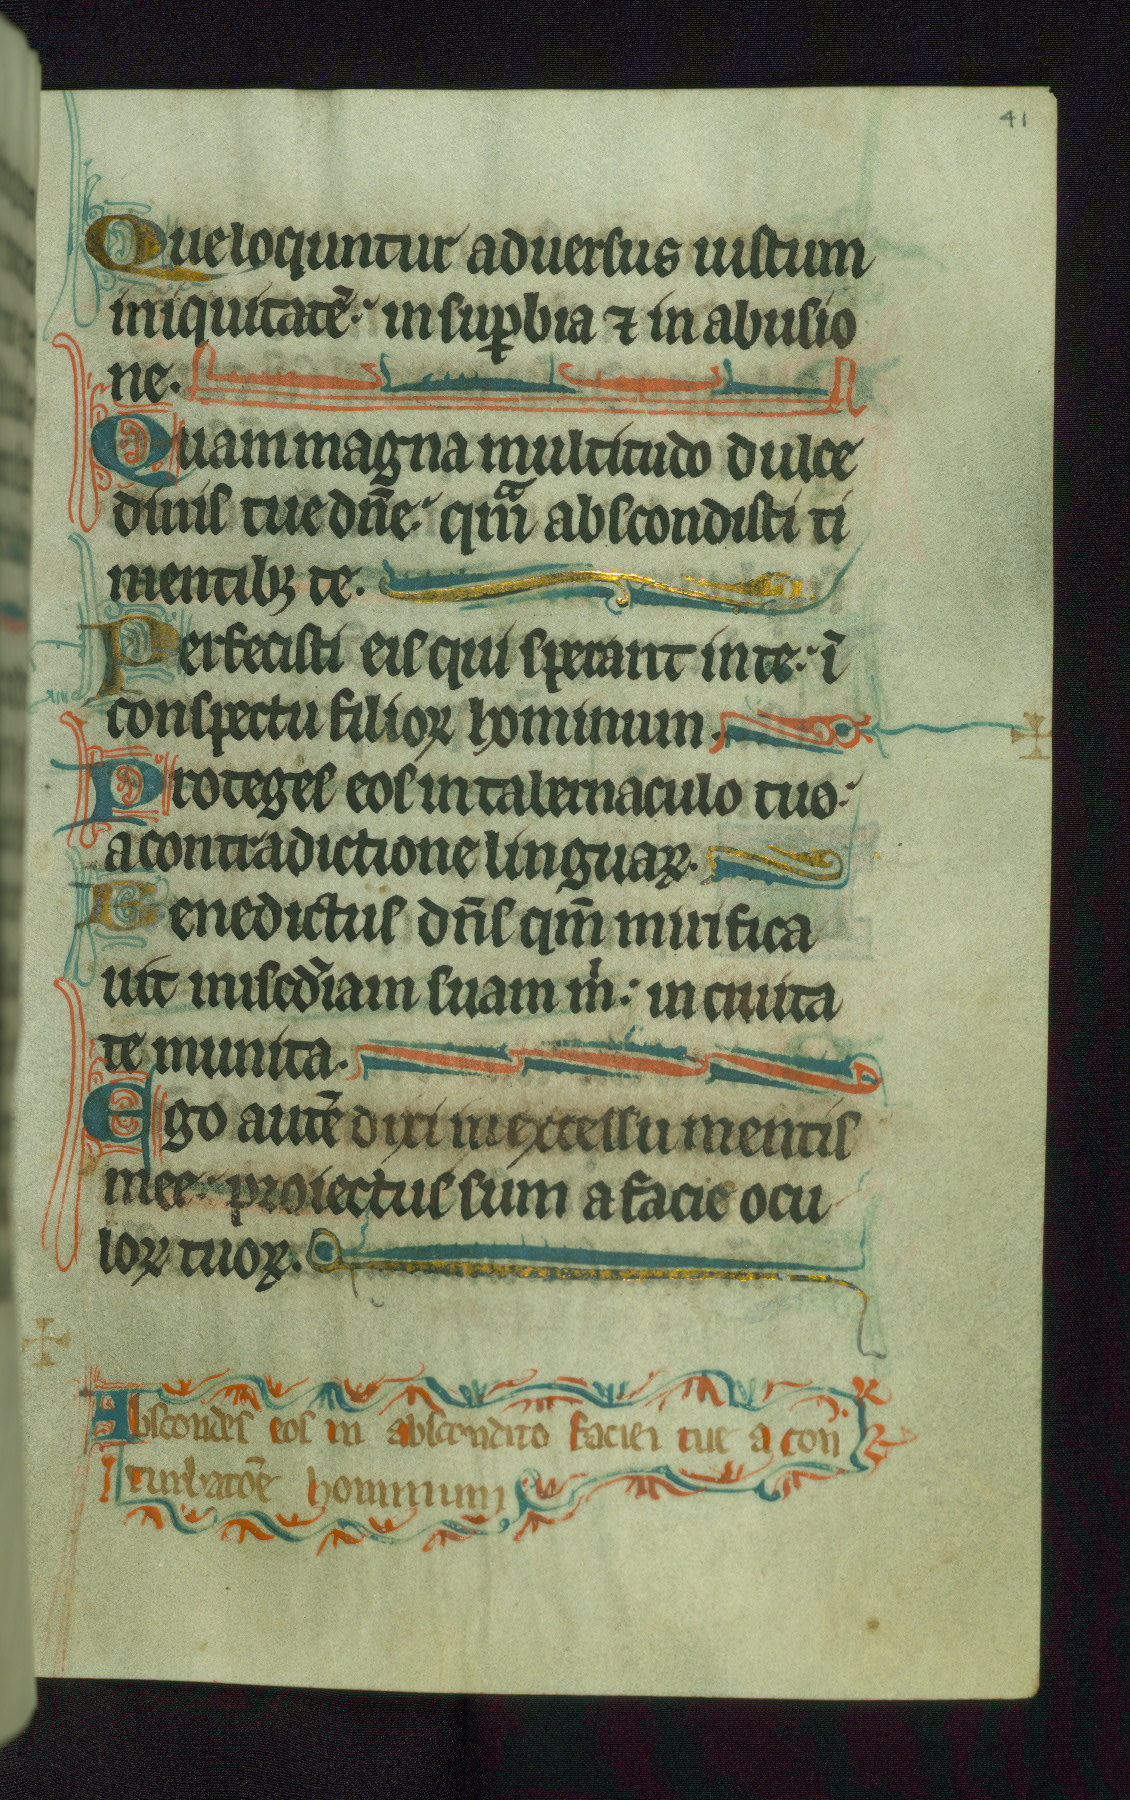 41
Que loquntur adversus iustum
iniquitatē. in sup̱bia ⁊ in abusio
ne.
Quam magna multitudo dulce
dinis tue dn̄e. qm̄ abscondisti ti
mentibꝫ te.
Perfecisti eis qui sperant in te. ī
conspectu filioꝝ hominum.
Proteges eos in tabernaculo tuo.
a contradictione linguaꝝ.
Benedictus dn̄s qm̄ mirifica
uit misc̄diam suam m̄. in ciuita
te munita.
Ego autē dixi in excessu mentis
mee. proiectus sum a facie ocu
loꝝ tuoꝝ.
Abscondes eos in abscondito faciei tue a con
turbatōe hominum